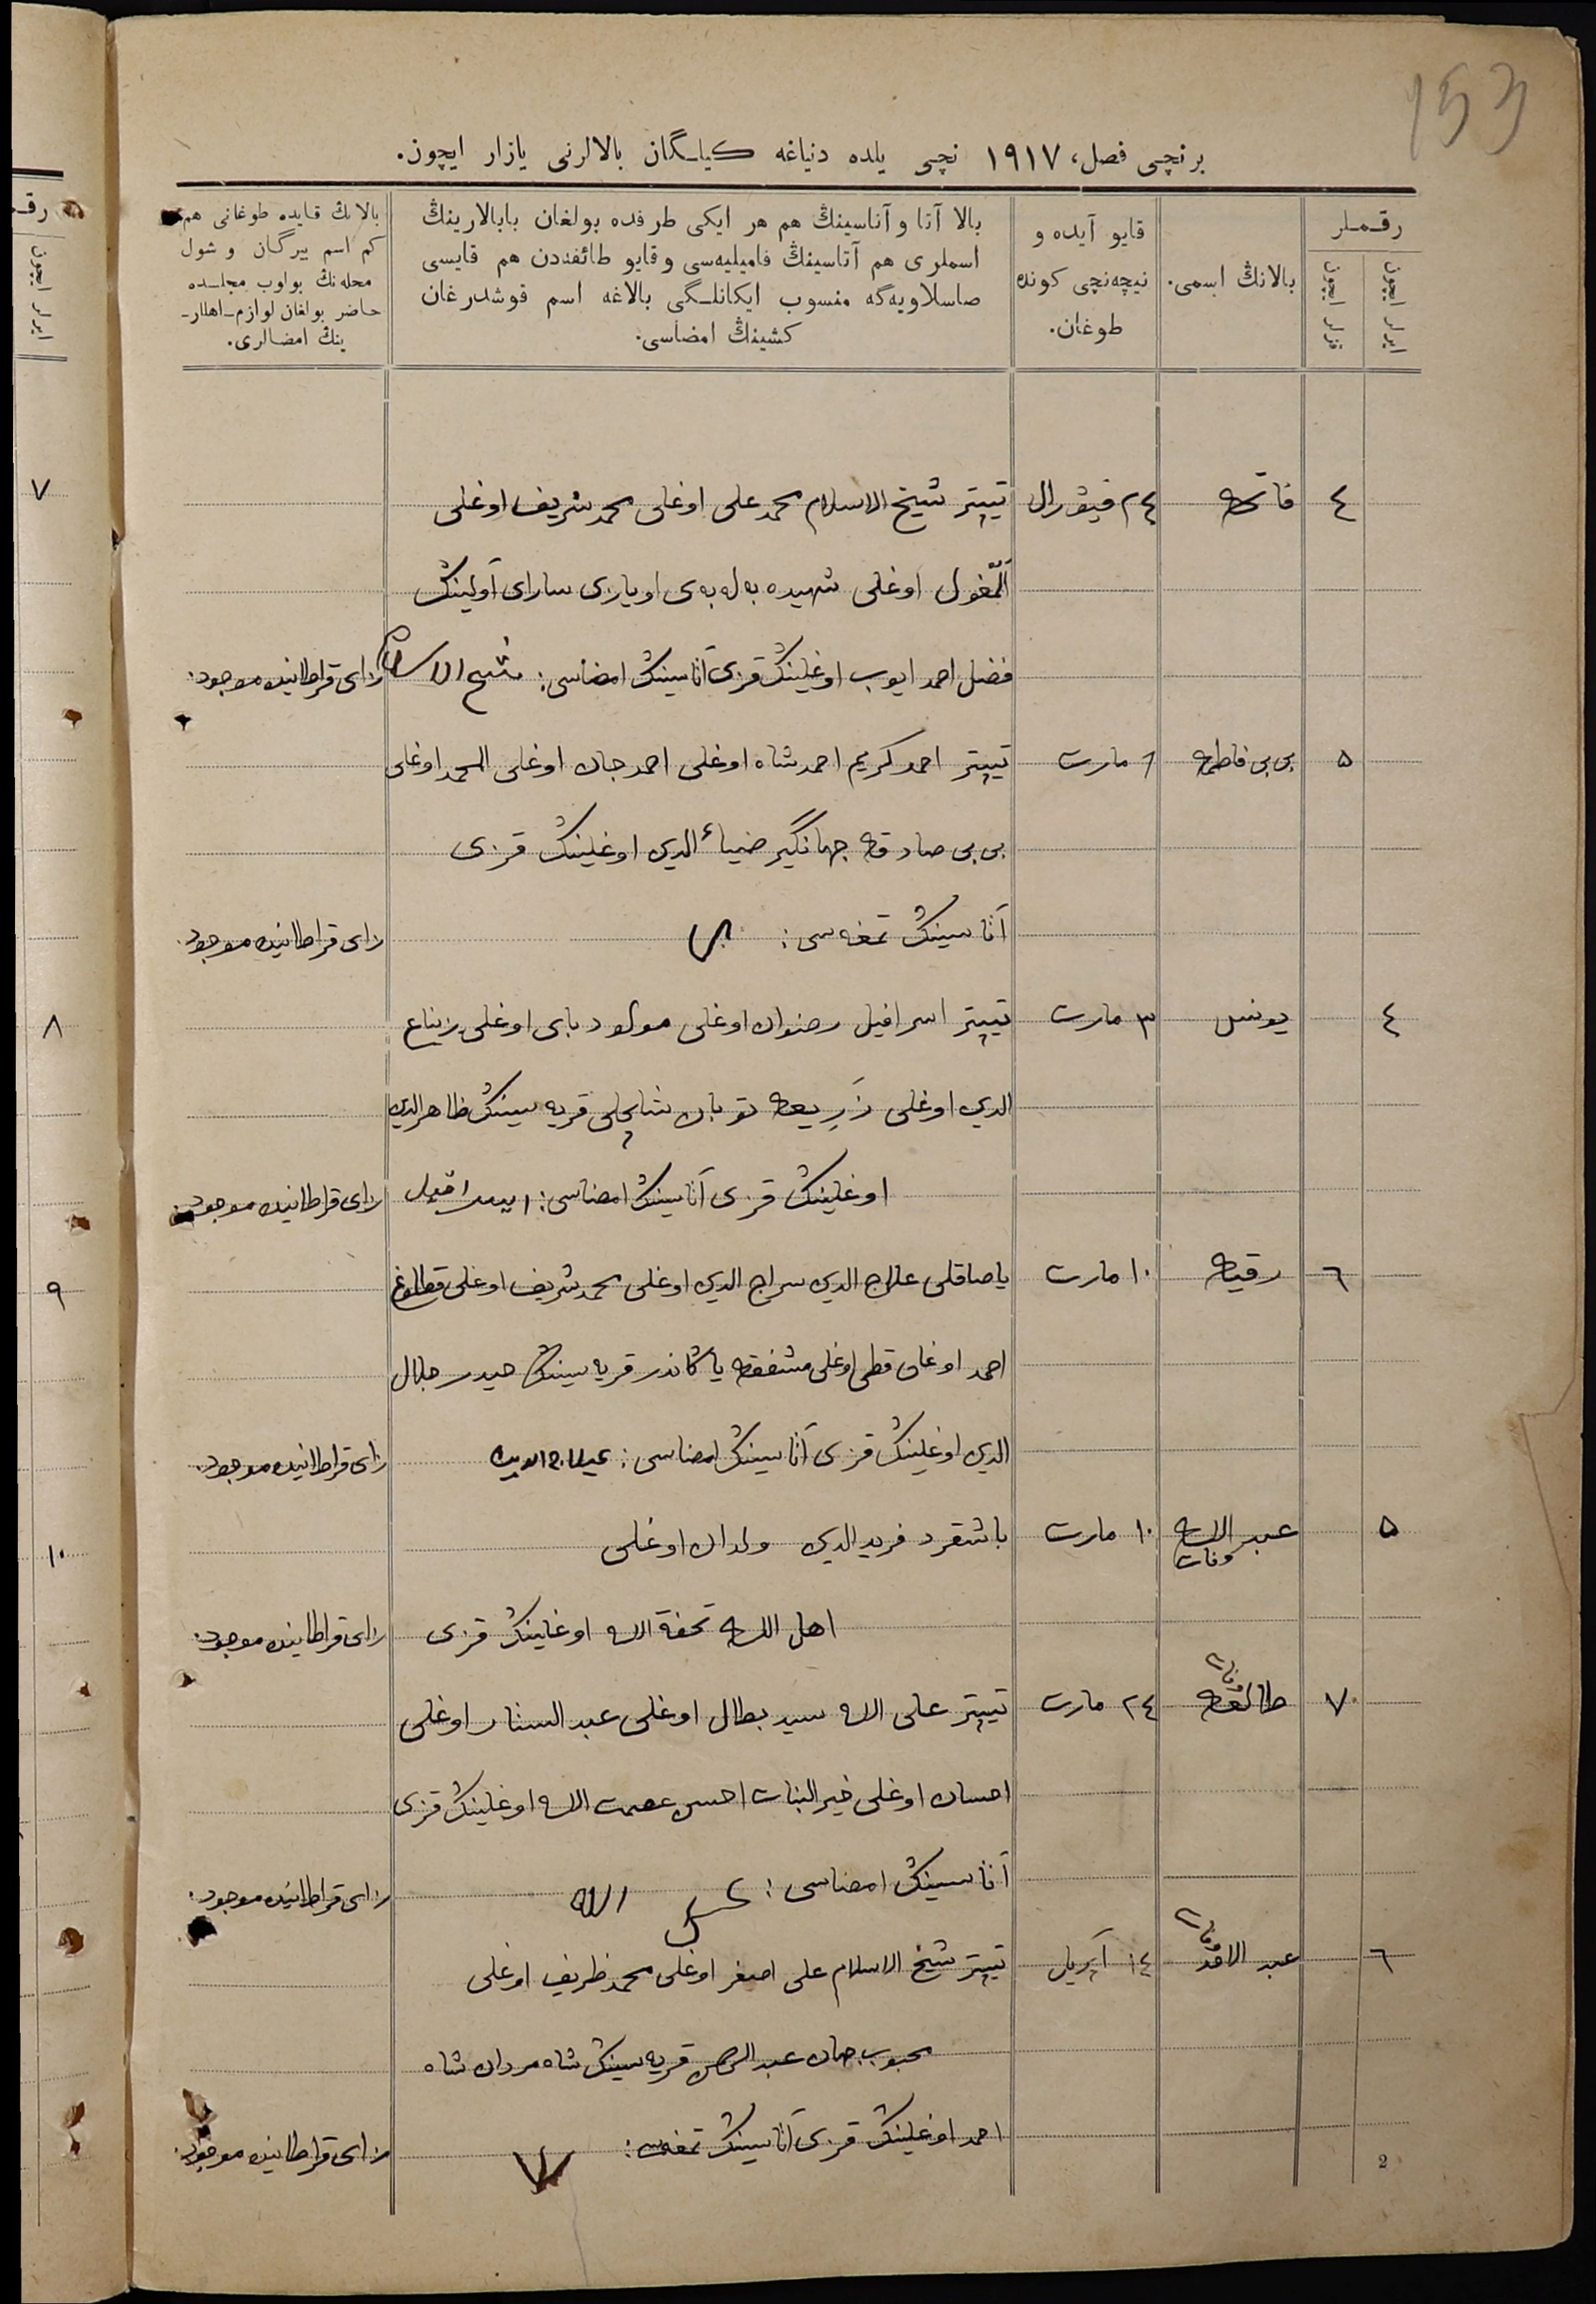 153
برنچی فصل، ١٩١٧ نچی یلده دنیاغه كیلـگان بالالرنی یازار ایچون.
رقـمـلر
ایرلر ایچون
قزلر ایچون
بالانڭ اسمی.
قایو آیده و
نیچه‌نچی كونده
طوغان.
بالا آتا و آناسینڭ هم هر ایكی طرفده بولغان بابالارینڭ
اسملری هم آتاسینڭ فامیلیه‌سی و قایو طائفه‌دن هم قایسی
صاسلاویه‌گه منسوب ایكانلـگی بالاغه اسم قوشدرغان
كشینڭ امضاسی.
بالانڭ قایده طوغانی هم
كم اسم بیرگان و شول
محله‌نڭ بولوب مجلـسده
حاضر بولغان لوازم-اهللار-
ینڭ امضالری.
٤ فاتحه ٢٤ فیقرال تیپتر شیخ الاسلام محمد علی اوغلی محمد شریف اوغلی
آلمغول اوغلی شهیده به‌له‌به‌ی اویازی سارای آولینڭ
فضل احمد ایوب اوغلینڭ قزی آتاسینڭ امضاسی: شیخ الاسلام زای قراطانینده موجود.
٥ بی بی فاطمه ٦ مارت تیپتر احمد كریم احمدشاه اوغلی احمد جان اوغلی المحمد اوغلی
بی بی صادقه جهانگیر ضیاء الدین اوغلینڭ قزی
آتاسینڭ تمغه‌سی: زای قراطانینده موجود.
٤ یونس ٣ مارت تیپتر اسرافیل رضوان اوغلی مولود بای اوغلی
الدین اوغلی توبان قریه سینڭ ظاهرالدین
اوغلینڭ قزی آتاسینڭ امضاسی: زای قراطانینده موجود.
٦ رقیه ١٠ مارت یاصاقلی علاج الدین سراج الدین اوغلی محمد شریف اوغلی قطلوغ
احمد اوغلی اوغلی مشفقه قریه سینڭ حیدر جلال
الدین اوغلینڭ قزی آتاسینڭ امضاسی: علاج الدین زای قراطانینده موجود.
٥ عبد الله وفات ١٠ مارت باشقرد فرید الدین ولدان اوغلی
اهل الله تحفة الله اوغلینڭ قزی زای قراطانینده موجود.
٧ وفات ٢٤ مارت تیپتر علی الله سید بطال اوغلی عبد الستار اوغلی
احسان اوغلی خیر البنات احسن عصمت الله اوغلینڭ قزی
آتاسینڭ امضاسی: الله زای قراطانینده موجود.
٦ عبد الاحد وفات ١٤ آپریل تیپتر شیخ الاسلام علی اصغر اوغلی محمد ظریف اوغلی
محبوب جهان عبد الرحمن قریه سینڭ شاه مردان شاه
احمد اوغلینڭ قزی آتاسینڭ تمغه‌سی: زای قراطانینده موجود.
2
رقـ
ایرلر ایچون
٧
٨
٩
١٠